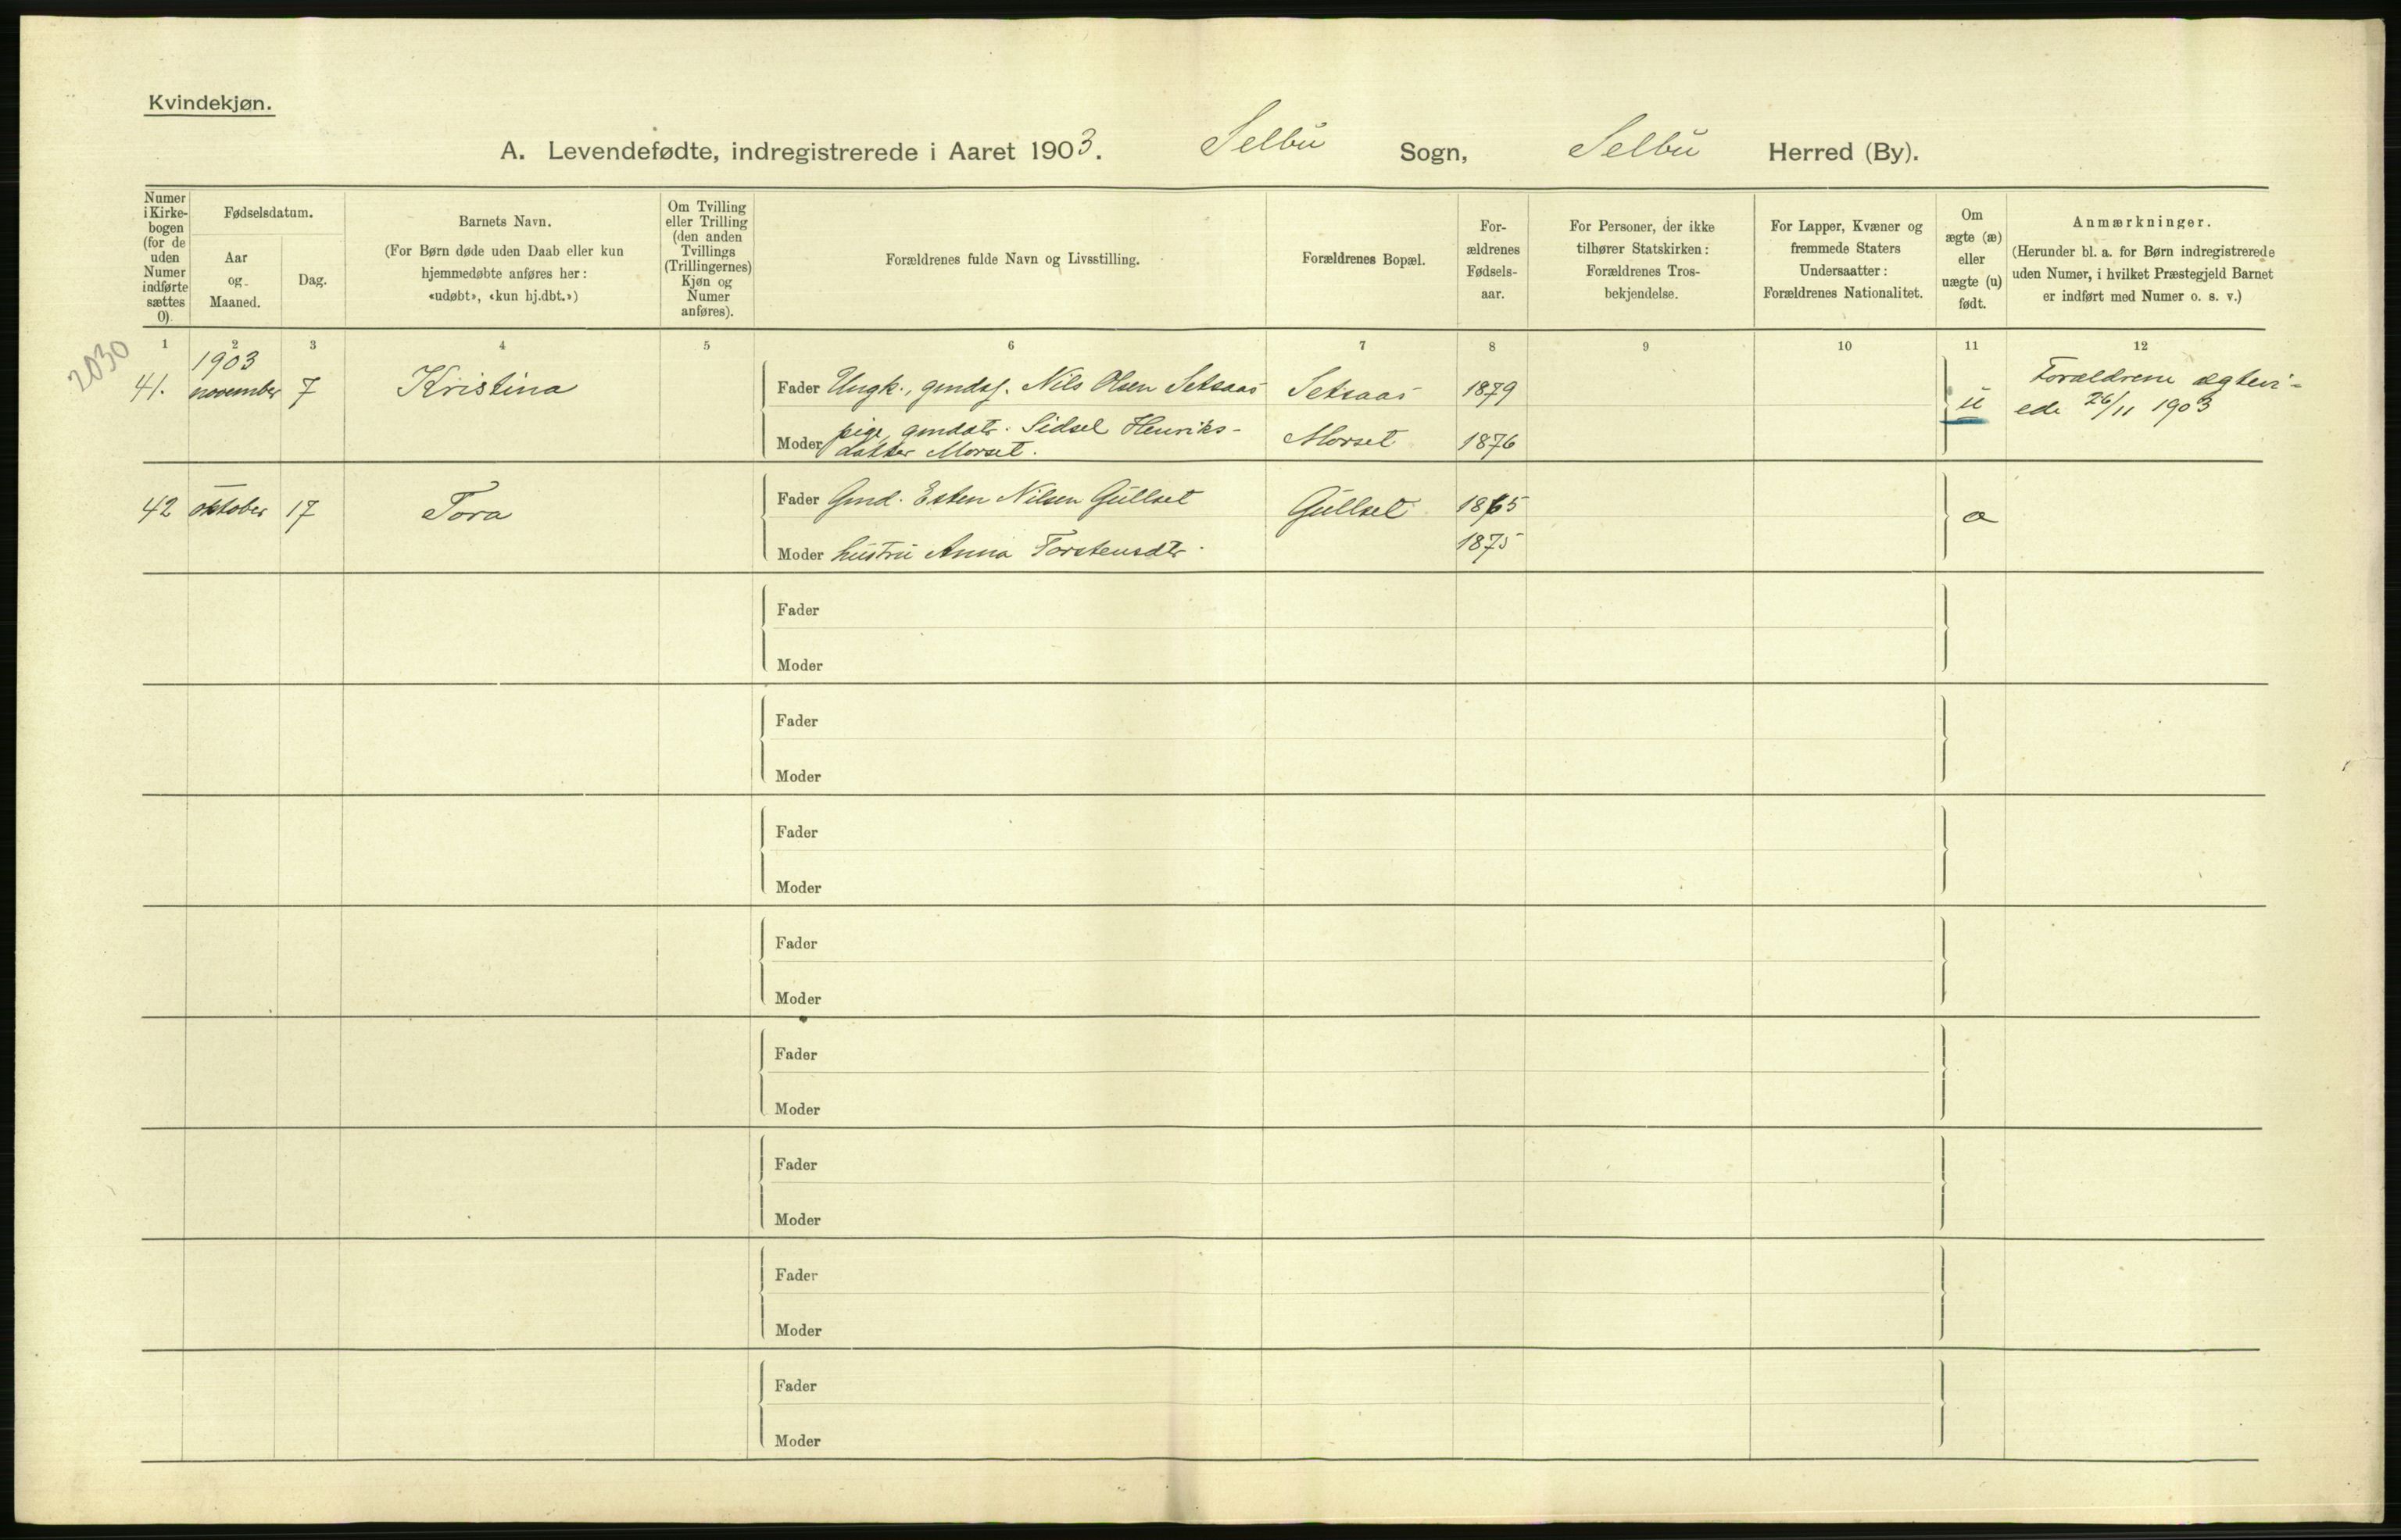 Kvindekjøn.
A. Levendefødte, indregistrerede i Aaret 1903. Selbu Sogn, Selbu Herred (By).
Numer
i Kirke-
bogen
(for de
uden
Numer
indførte
sættes
0)
Fødselsdatum.
Aar
og
Maaned.
Dag.
Barnets Navn.
(For Børn døde uden Daab eller kun
hjemmedøbte anføres her:
«udøbt», «kun hj.dbt.»)
Om Tvilling
eller Trilling
(den anden
Tvillings
(Trillingernes)
Kjøn og
Numer
anføres).
Forældrenes fulde Navn og Livsstilling.
Forældrenes Bopæl.
For-
ældrenes
Fødsels-
aar.
For Personer, der ikke
tilhører Statskirken:
Forældrenes Tros-
bekjendelse.
For Lapper, Kvæner og
fremmede Staters
Undersaatter:
Forældrenes Nationalitet.
Om
ægte (æ)
eller
uægte (u)
født.
Anmærkninger.
(Herunder bl. a. for Børn indregistrerede
uden Numer, i hvilket Præstegjeld Barnet
er indført med Numer o. s. v.)
1 2 3 4 5 6 7 8 9 10 11 12
2030
1903
41. november 7 Kristina
Fader Ungk., gmdsf. Nils Olsen Setsaas Setsaas 1879
Moder pige, gmdatr. Sidsel Henriks-
datter Morset. Morset 1876
u
Forældrene ægtevi-
ede 26/11 1903
42 oktober 17 Tora
Fader Gmd. Esten Nilsen Gullset Gullset 1865
Moder hustru Anna Torstensdtr. 1875
æ
Fader
Moder
Fader
Moder
Fader
Moder
Fader
Moder
Fader
Moder
Fader
Moder
Fader
Moder
Fader
Moder